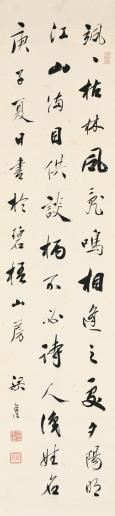 颯颯枯林風亂鳴相逢之處夕陽明
江山滿目供談柄不必詩人識姓名
庚子夏日書於碧梧山房 梁